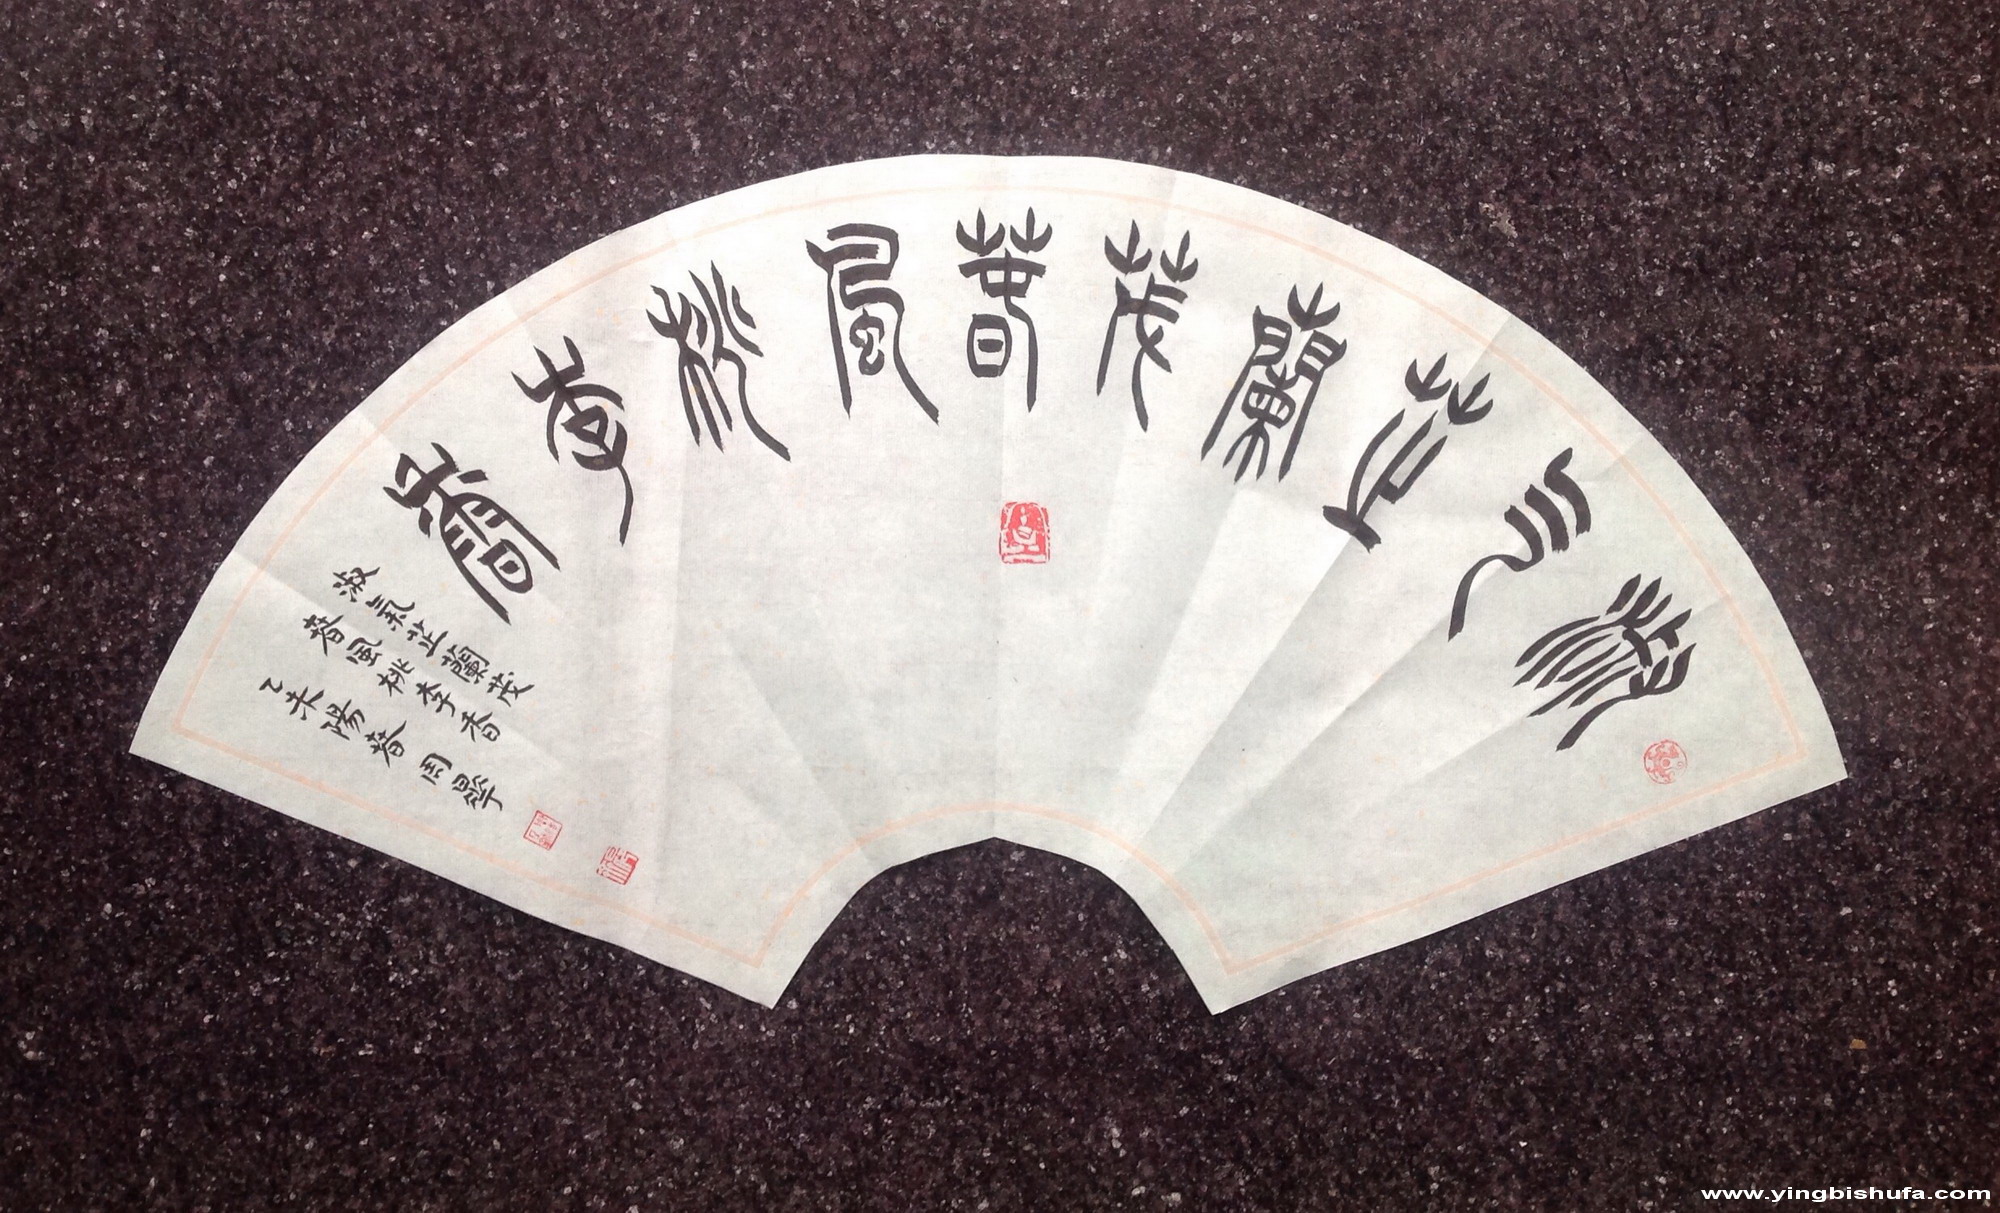 淑气芷蘭茂春風桃李香
淑氣芷蘭茂
春風桃李香
乙未陽春周舉
www.yingbishufa.com